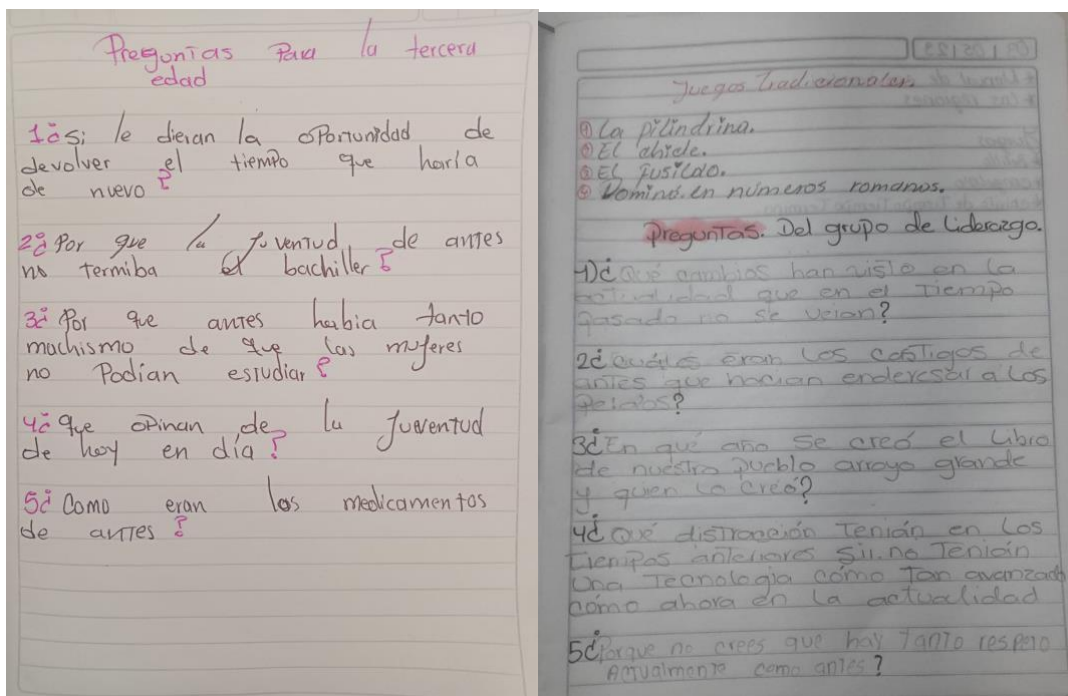 Preguntas Para la tercera
edad
1¿ Si le dieran la oportunidad de
devolver el tiempo que haría
de nuevo?
2¿ Por que la juventud de antes
no termiba el bachiller?
3¿ Por que antes habia tanto
machismo de que las mujeres
no Podian estudiar?
4¿ que opinan de la Juventud
de hoy en día?
5¿ Como eran los medicamentos
de antes?
03/05/23
Juegos Tradicionales.
① La pilindrina.
② El ahide.
③ EL Fusilao.
④ Dominó en números romanos.
Preguntas. Del grupo de Liderazgo.
1)¿Qué cambios han visto en la
actualidad que en el Tiempo
pasado no se veian?
2¿Cuáles eran los castigos de
antes que hacian enderesar a los
pelaos?
3¿En qué año se creó el Libro
de nuestro pueblo arroyo grande
y quien lo creó?
4¿Qué distracción Tenián en los
Tiempos anteriores si no Tenián
una Tecnologia cómo Tan avanzada
cómo ahora en la actualidad
5¿Porque no crees que hay Tanto respeto
Actualmente como antes?